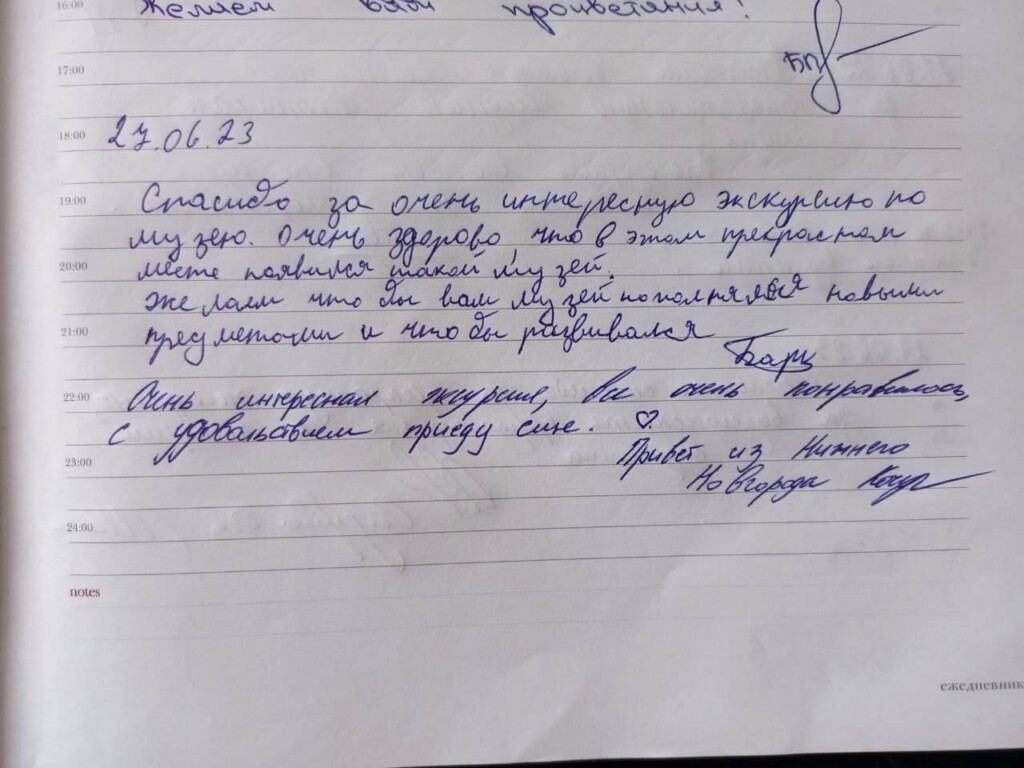 16:00 Желаем вам процветания!
17:00
18:00 27.06.23
19:00 Спасибо за очень интересную экскурсию по
музею. Очень здорово что в этом прекрасном
20:00 месте появился такой музей.
Желаем что бы вам музей пополнялся новыми
21:00 предметами и что бы развивался
Барц
22:00 Очень интересная экурсия, все очень понравилось,
с удовольствием приеду еще. ♡
23:00 Привет из Нижнего
Новгорода
24:00
notes
ежедневник